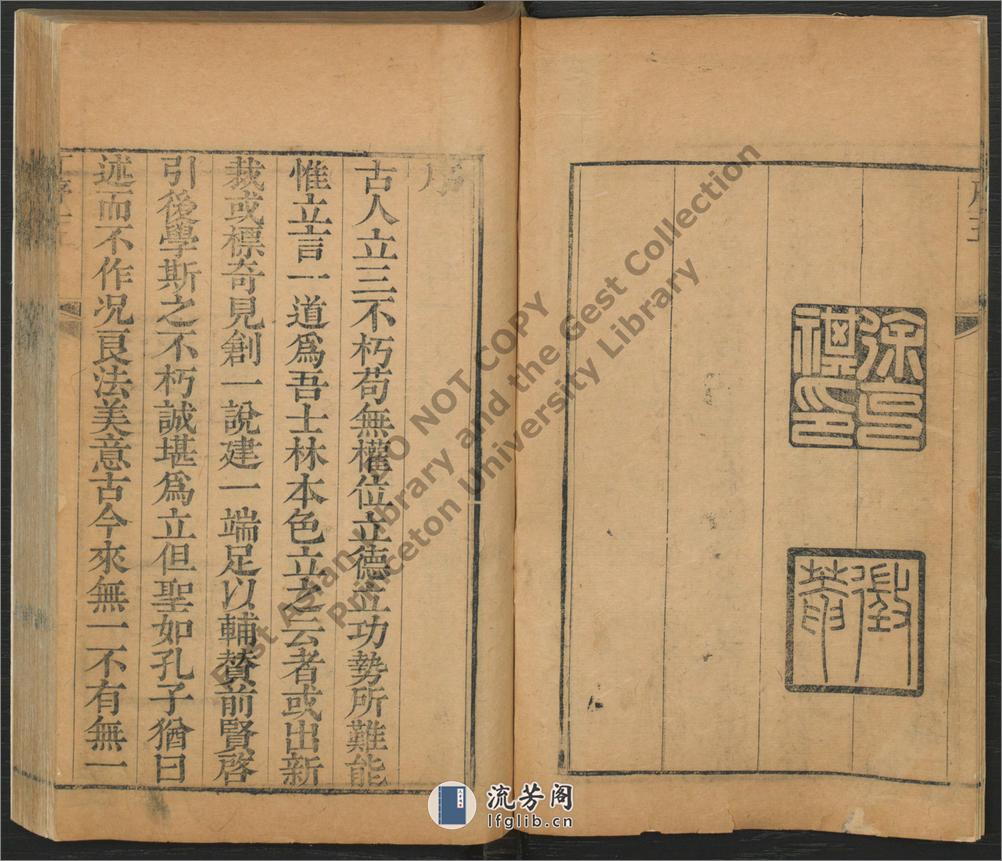 序
古人立三不朽苟無權位立德立功勢所難能
惟立言一道爲吾士林本色立之云者或出新
裁或標奇見創一說建一端足以輔賛前賢啓
引後學斯之不朽誠堪爲立但聖如孔子猶曰
述而不作况良法美意古今來無一不有無一
DO NOT COPY
East Asian Library and the Gest Collection
Princeton University Library
流芳阁
lfglib.cn